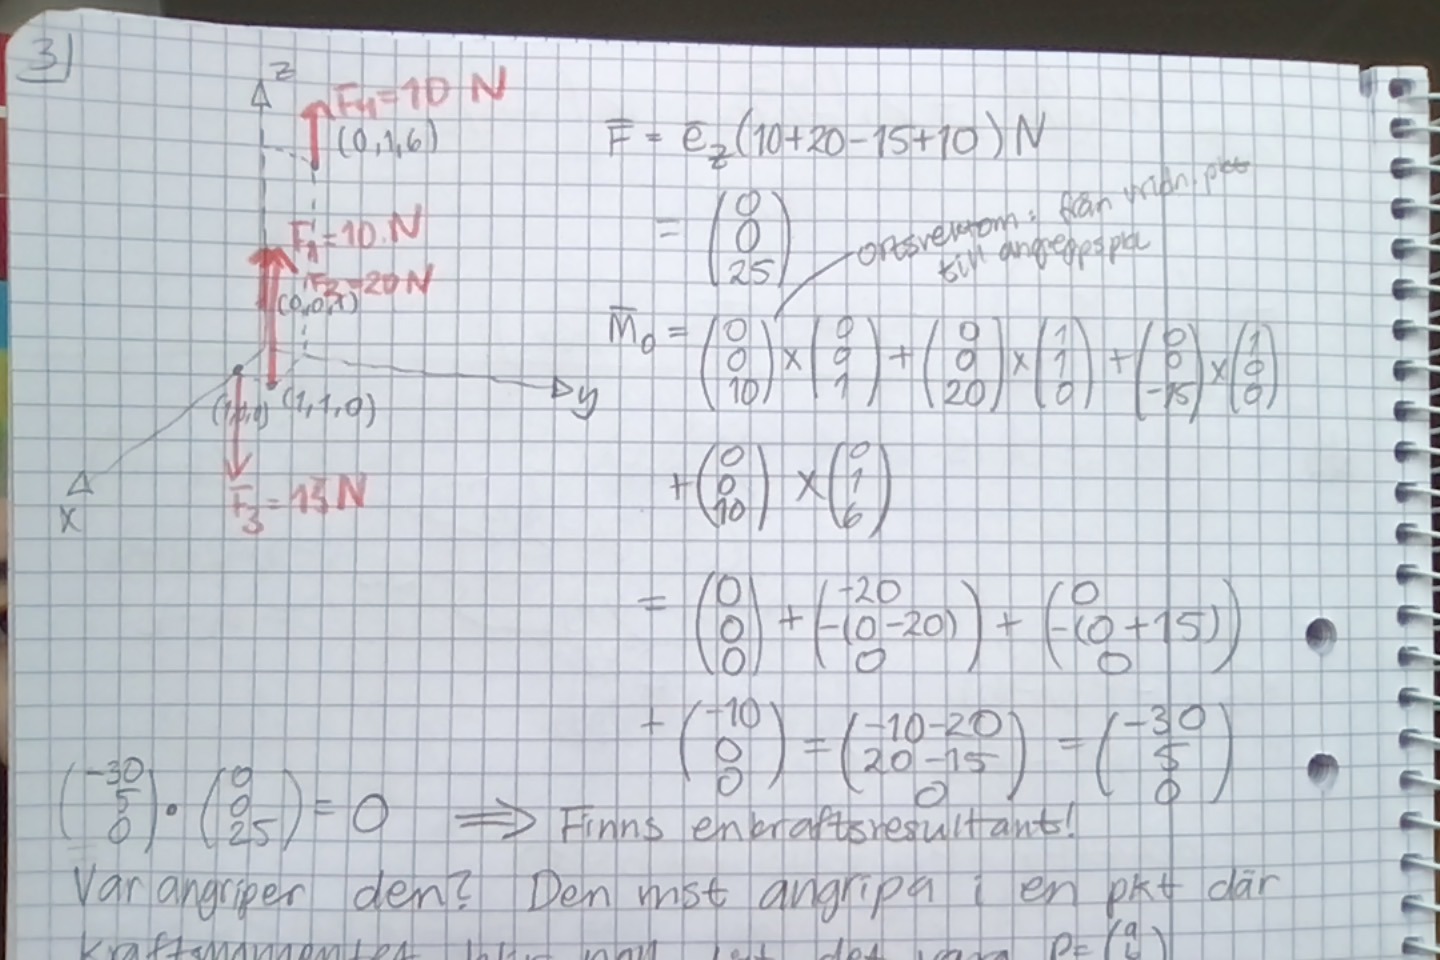 3)
z
F₄=10 N
(0,1,6)
F₁=10 N
F₂=20 N
(0,0,1)
(1,0,0) (1,1,0)
y
x
F₃=15 N
F̄ = ē_z(10+20-15+10) N
= (0 0 25)
ortsvektorn: från vridn.pkt
till angreppspkt
M̄₀ = (0 0 10) × (0 0 1) + (0 0 20) × (1 1 0) + (0 0 -15) × (1 0 0)
+ (0 0 10) × (0 1 6)
= (0 0 0) + (-20 -(0-20) 0) + (0 -(0+15) 0)
+ (-10 0 0) = (-10-20 20-15 0) = (-30 5 0)
(-30 5 0) • (0 0 25) = 0 ⟹ Finns enkraftsresultant!
Var angriper den? Den mst angripa i en pkt där